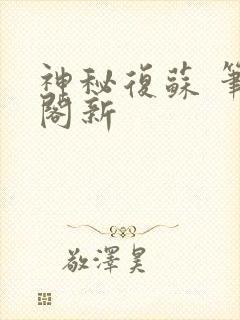 神秘復蘇 筆
閣新
敬澤昊